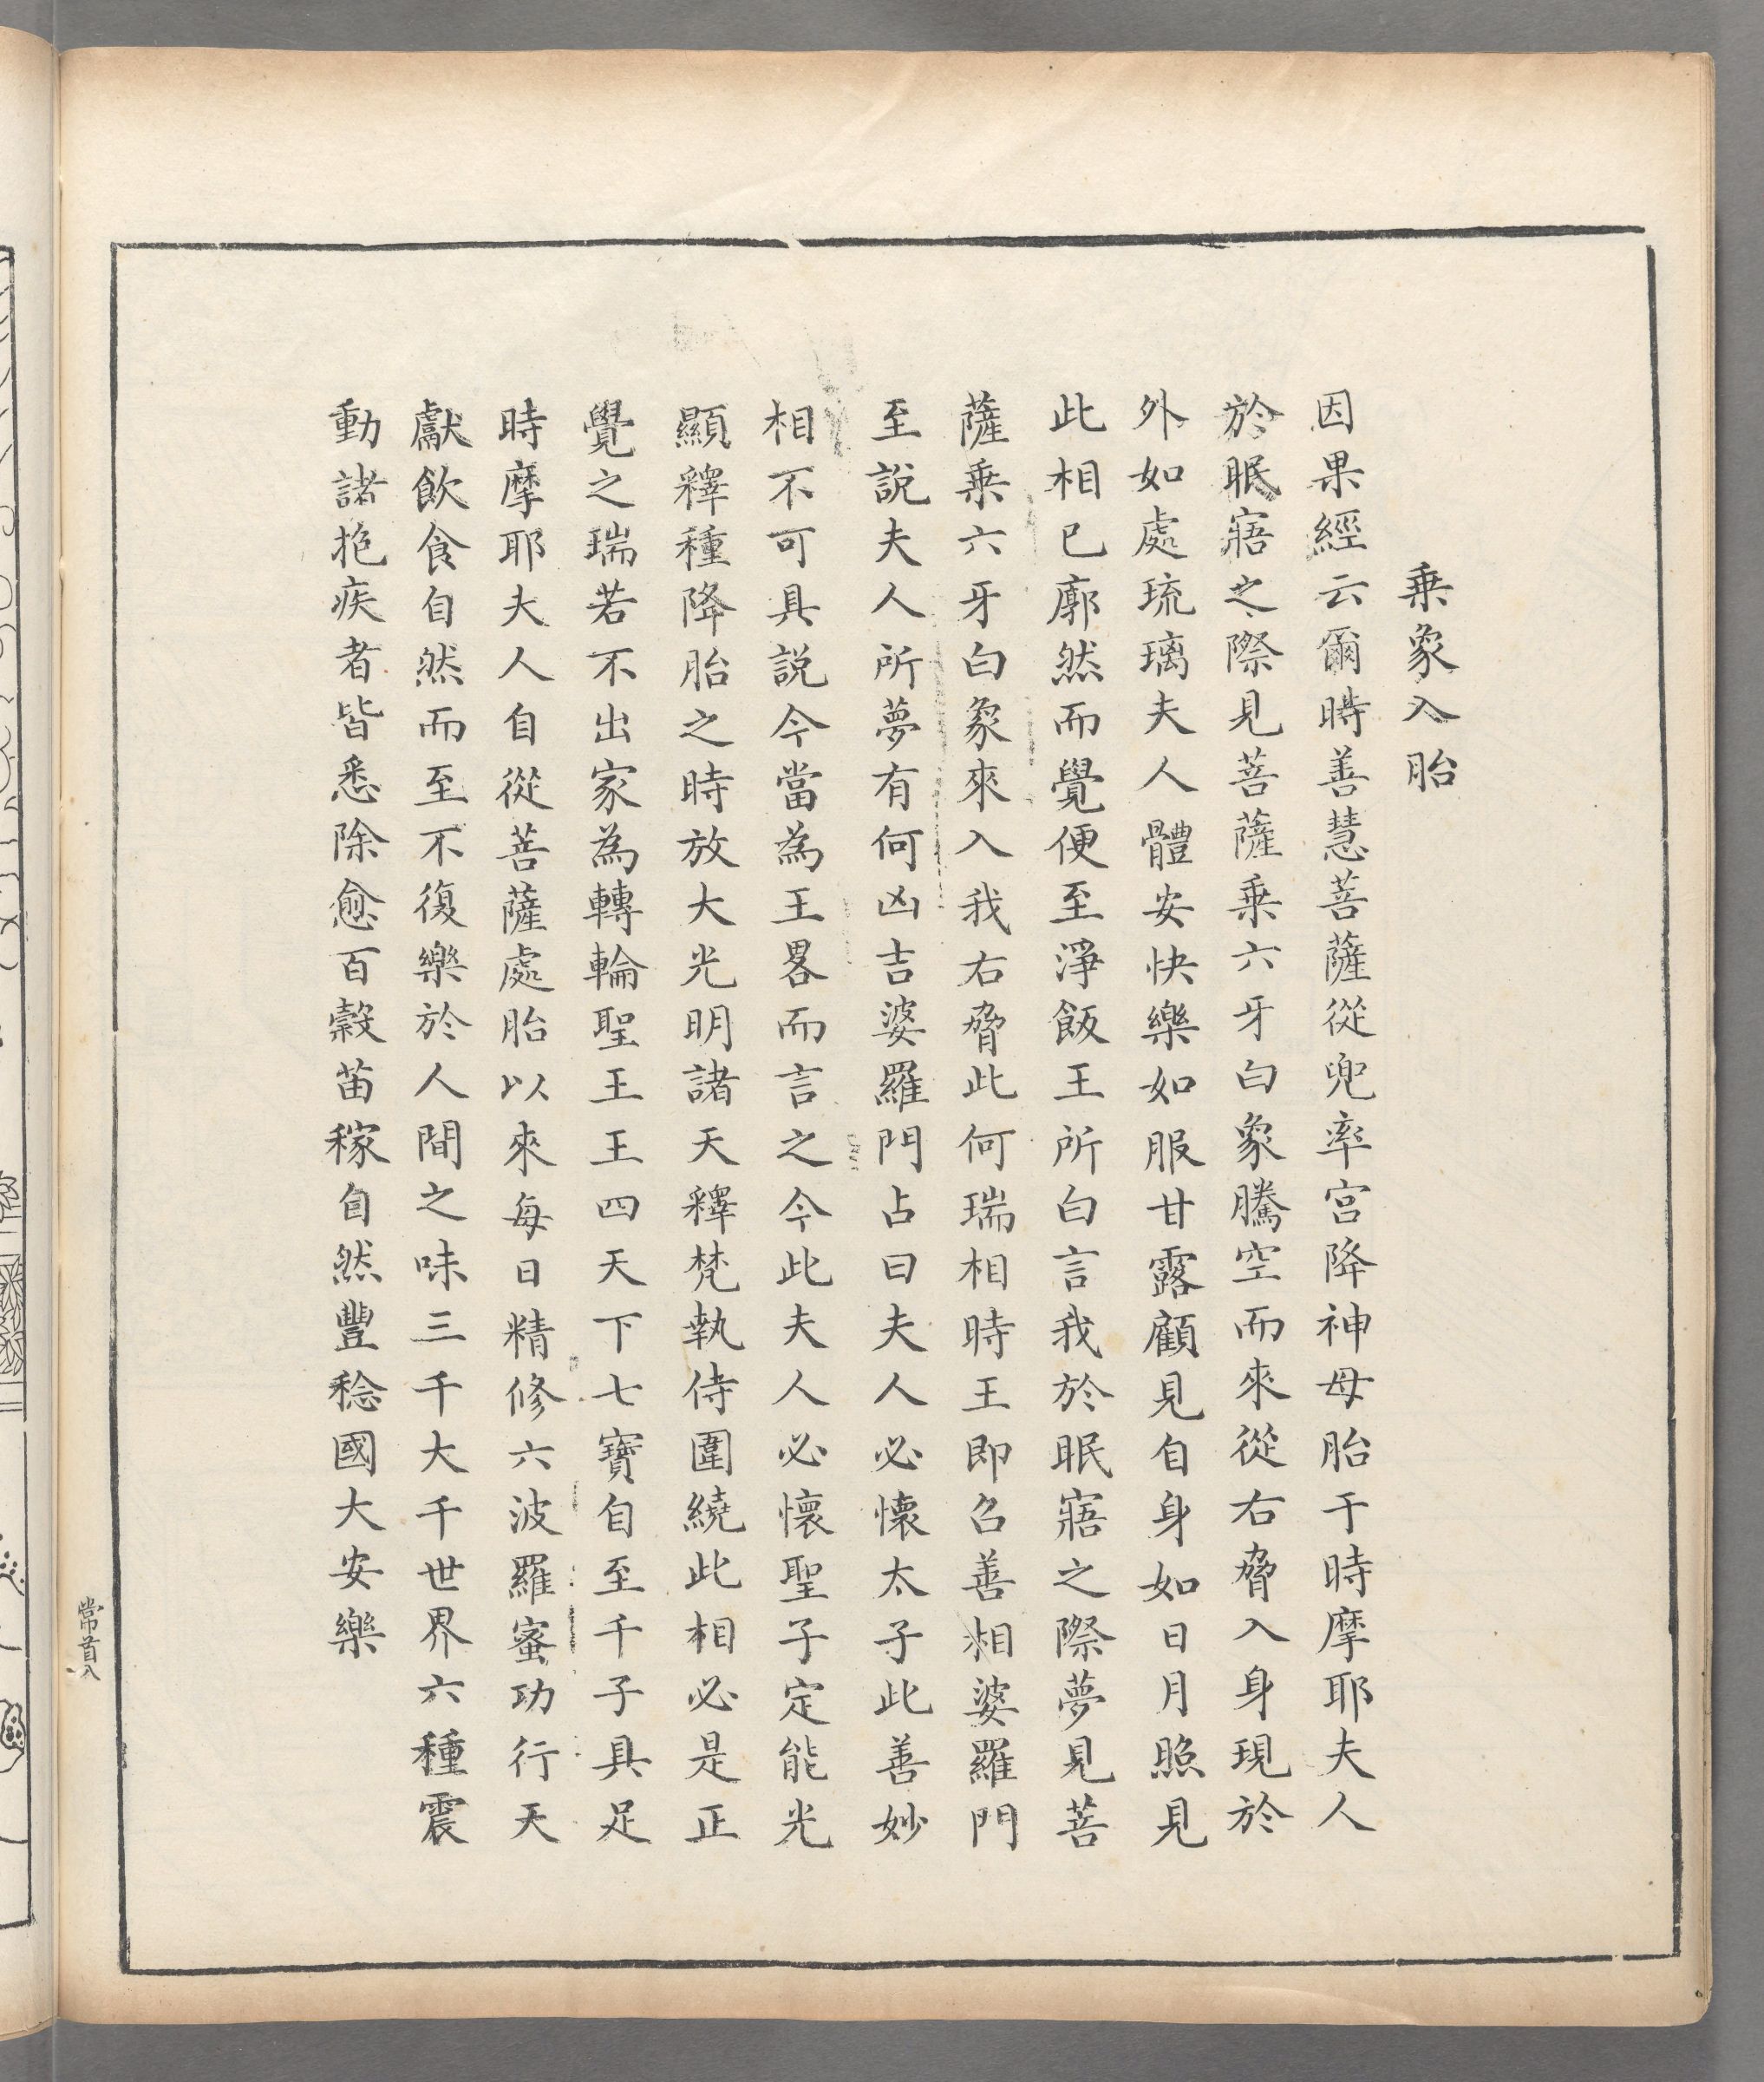 乗象入胎
因果經云爾時善慧菩薩從兜率宮降神母胎于時摩耶夫人
於眠寤之際見菩薩乗六牙白象騰空而來從右脅入身現於
外如處琉璃夫人體安快樂如服甘露顧見自身如日月照見
此相已廓然而覺便至淨飯王所白言我於眠寤之際夢見菩
薩乗六牙白象來入我右脅此何瑞相時王即召善相婆羅門
至說夫人所夢有何凶吉婆羅門占曰夫人必懷太子此善妙
相不可具說今當為王畧而言之今此夫人必懷聖子定能光
顯釋種降胎之時放大光明諸天釋梵執侍圍繞此相必是正
覺之瑞若不出家為轉輪聖王王四天下七寶自至千子具足
時摩耶夫人自從菩薩處胎以來每日精修六波羅蜜功行天
獻飲食自然而至不復樂於人間之味三千大千世界六種震
動諸抱疾者皆悉除愈百穀苗稼自然豐稔國大安樂
常首八